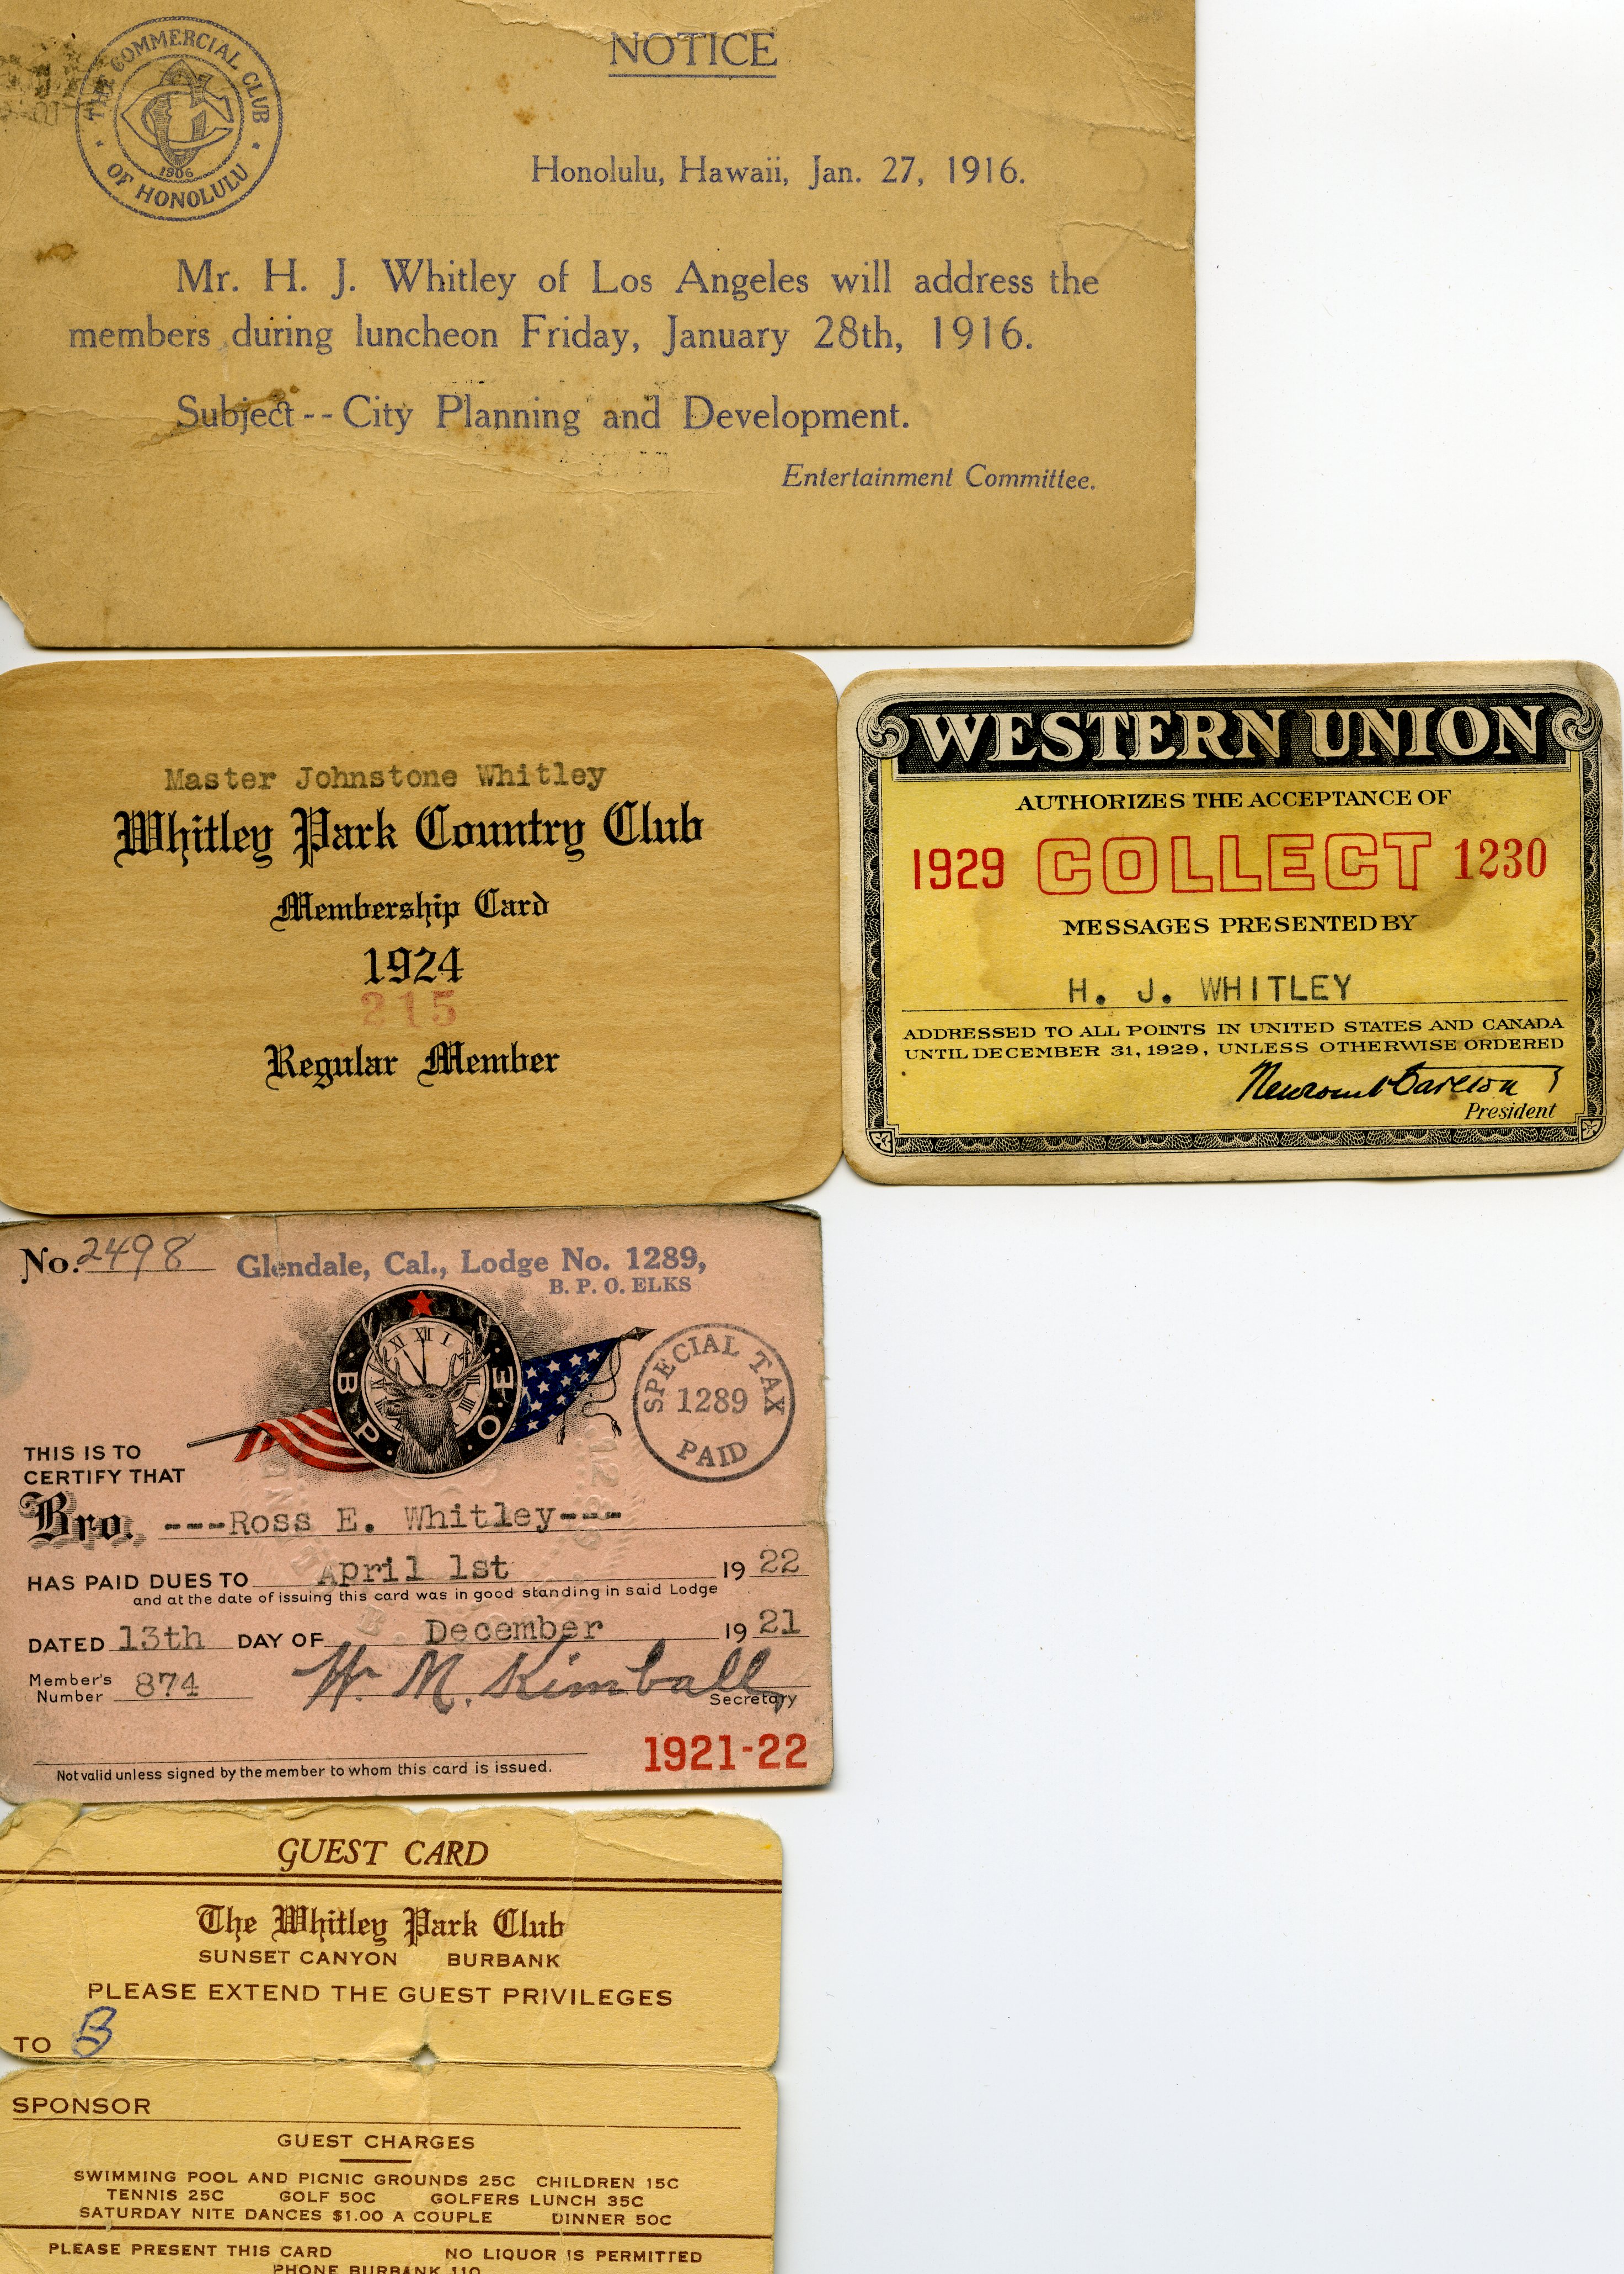 NOTICE
THE COMMERCIAL CLUB
OF HONOLULU
1906
Honolulu, Hawaii, Jan. 27, 1916.
Mr. H. J. Whitley of Los Angeles will address the
members during luncheon Friday, January 28th, 1916.
Subject -- City Planning and Development.
Entertainment Committee.
Master Johnstone Whitley
Whitley Park Country Club
Membership Card
1924
215
Regular Member
WESTERN UNION
AUTHORIZES THE ACCEPTANCE OF
1929 COLLECT 1230
MESSAGES PRESENTED BY
H. J. WHITLEY
ADDRESSED TO ALL POINTS IN UNITED STATES AND CANADA
UNTIL DECEMBER 31, 1929, UNLESS OTHERWISE ORDERED
Newcomb Carlton
President
No. 2498 Glendale, Cal., Lodge No. 1289,
B. P. O. ELKS
B P O E
SPECIAL TAX
1289
PAID
THIS IS TO
CERTIFY THAT
Bro. ---Ross E. Whitley---
HAS PAID DUES TO April 1st 1922
and at the date of issuing this card was in good standing in said Lodge
DATED 13th DAY OF December 1921
Member's
Number 874
W. M. Kimball
Secretary
1921-22
Not valid unless signed by the member to whom this card is issued.
GUEST CARD
The Whitley Park Club
SUNSET CANYON BURBANK
PLEASE EXTEND THE GUEST PRIVILEGES
TO B
SPONSOR
GUEST CHARGES
SWIMMING POOL AND PICNIC GROUNDS 25C CHILDREN 15C
TENNIS 25C GOLF 50C GOLFERS LUNCH 35C
SATURDAY NITE DANCES $1.00 A COUPLE DINNER 50C
PLEASE PRESENT THIS CARD NO LIQUOR IS PERMITTED
PHONE BURBANK 110